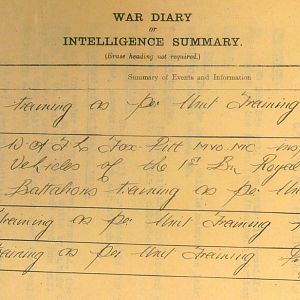 WAR DIARY
or
INTELLIGENCE SUMMARY.
(Erase heading not required.)
Summary of Events and Information
training as per Unit Training
Fox-Pitt MVO. MC
Vehicles of the 1st Bn Royal
Battalions training as per
training as per Unit Training
training as per Unit Training